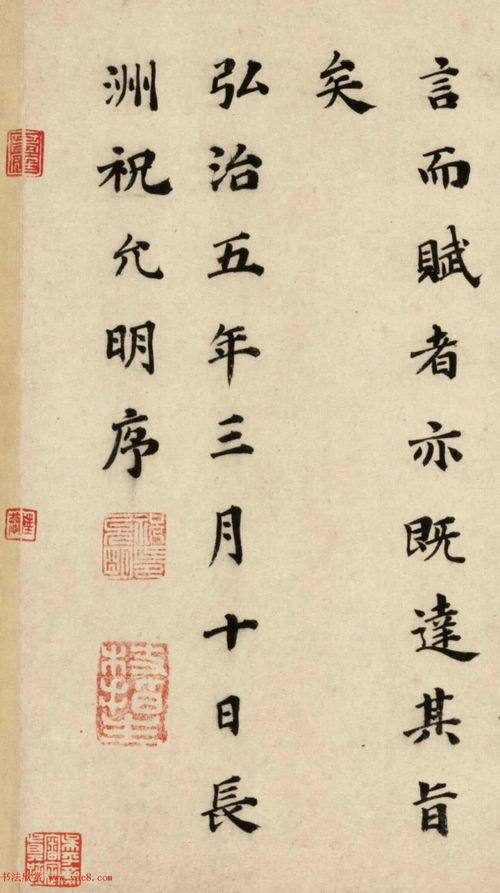 言而賦者亦既達其旨
矣
弘治五年三月十日長
洲祝允明序
书法欣赏 www.yac8.com